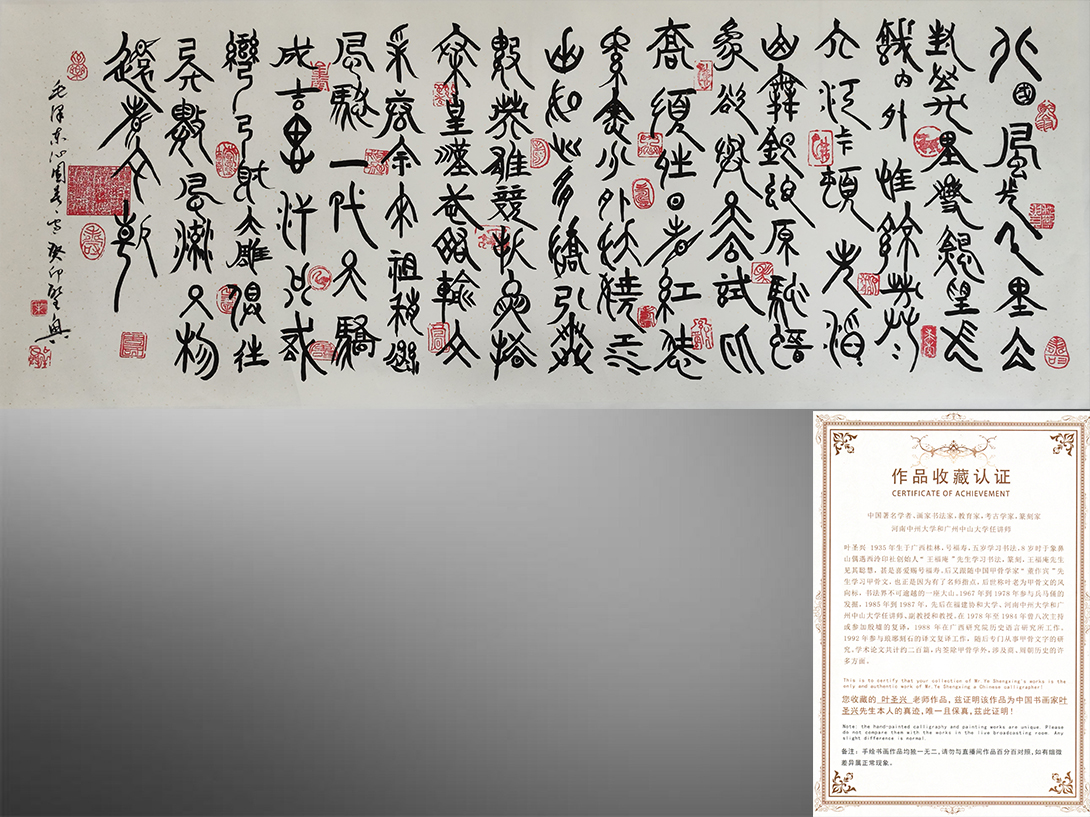 北國風光千里冰
封萬里雪飄望長
城内外惟餘莽〻
大河上下頓失滔〻
山舞銀蛇原馳蠟
象欲與天公試比
高須晴日看紅裝
素裹分外妖嬈江
山如此多嬌引無
數英雄競折腰
秦皇漢武略輸文
采唐宗宋祖稍遜
風騷一代天驕
成吉思汗只識
彎弓射大雕俱往
矣數風流人物
還看今朝
毛泽东沁园春雪 癸卯圣兴
作品收藏认证
CERTIFICATE OF ACHIEVEMENT
中国著名学者、画家书法家、教育家、考古学家、篆刻家
河南中州大学和广州中山大学任讲师
叶圣兴 1935年生于广西桂林，号福寿，五岁学习书法，8岁时于象鼻
山偶遇西泠印社创始人“王福庵”先生学习书法，篆刻，王福庵先生
见其聪慧，甚是喜爱赐号福寿，后又跟随中国甲骨学家“董作宾”先
生学习甲骨文，也正是因为有了名师指点，后世称叶老为甲骨文的风
向标，书法界不可逾越的一座大山。1967年到1978年参与兵马俑的
发掘，1985年到1987年，先后在福建协和大学、河南中州大学和广
州中山大学任讲师、副教授和教授。在1978年至1984年曾八次主持
或参加殷墟的复译，1988年在广西研究院历史语言研究所工作。
1992年参与琅琊刻石的译文复译工作，随后专门从事甲骨文字的研
究。学术论文共计约二百篇，内签除甲骨学外，涉及商、周朝历史的许
多方面。
This is to certify that your collection of Mr.Ye Shengxing's works is the
only and authentic work of Mr.Ye Shengxing a Chinese calligrapher!
您收藏的 叶圣兴 老师作品，兹证明该作品为中国书画家叶
圣兴先生本人的真迹，唯一且保真，兹此证明！
Note: the hand-painted calligraphy and painting works are unique. Please
do not compare them with the works in the live broadcasting room. Any
slight difference is normal.
备注：手绘书画作品均独一无二，请勿与直播间作品百分百对照，如有细微
差异属正常现象。